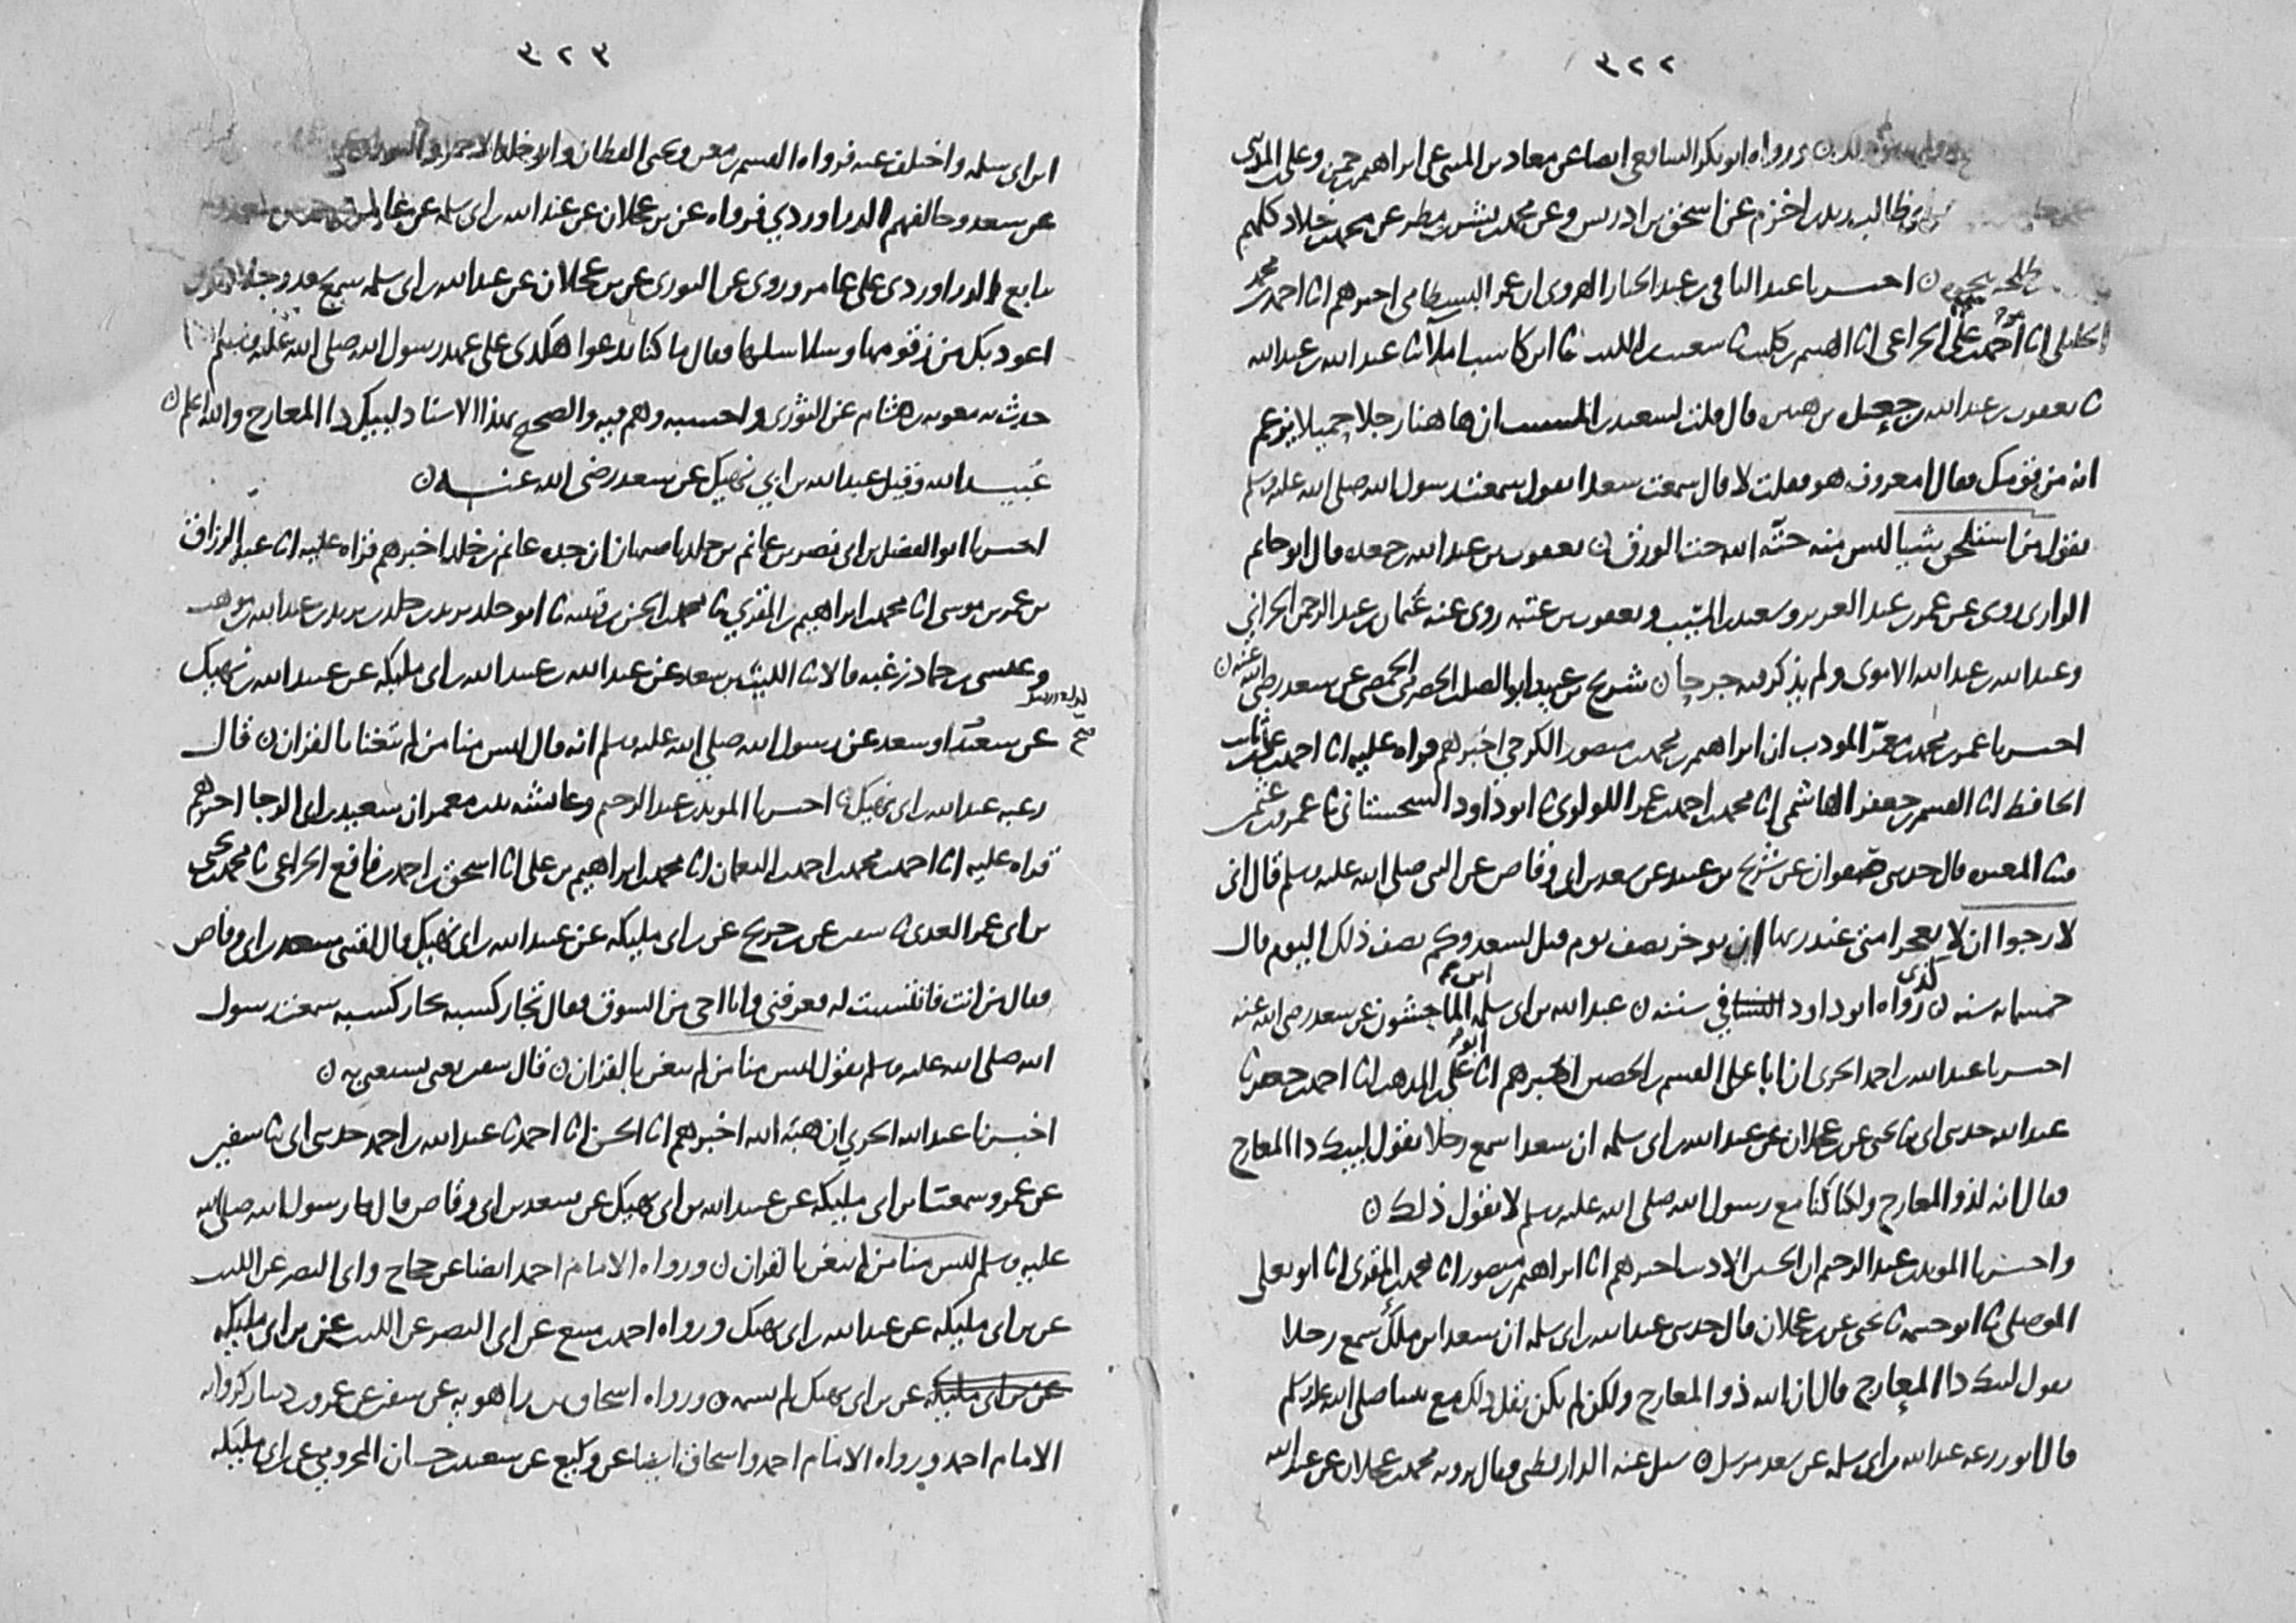 ٣٢٢
ورواه ابو بكر الشافعي ايضا عن معاذ بن المثنى عن ابراهيم بن وعلى بن المديني
طالب زيد بن اخزم عن اسحق بن ادريس وعن محمد بن بشر بن مطر عن محمد بن خلاد كلهم
احبرنا عبد الباقي بن عبد الجبار الهروي ان عمر البسطامي اخبرهم انا احمد بن محمد
الخليلي انا على الخزاعي انا الهيثم بن كليب ثنا شعيب بن الليث ثنا ابن كاسب املا ثنا عبد الله بن عبد الله
ثنا يعقوب بن عبد الله بن جعدة بن هبيره قال قلت لسعيد بن المسيب ان هاهنا رجلا جميلا يزعم
انه من قومك فقال امعروف هو فقلت لا قال سمعت سعدا يقول سمعت رسول الله صلى الله عليه وسلم
يقول من استلحق شيا ليس منه حته الله حت الورق ن يعقوب بن عبد الله بن جعده قال ابو حاتم
الرازي روى عن عمر بن عبد العزيز وسعيد بن المسيب ويعقوب بن عتبه روى عنه عثمان بن عبد الرحمن الحراني
وعبد الله بن عبد الله الاموي ولم يذكر فيه جرحا ن شريح بن عبيد ابو الصلت الحضرمي الحمصي عن سعد رضي الله عنه ن
احبرنا عمر بن محمد بن معمر المودب ان ابراهيم بن محمد بن منصور الكرخي اخبرهم قراه عليه انا احمد بن علي بن ثابت
الحافظ انا القسم بن جعفر الهاشمي انا محمد بن احمد بن عمر اللولوي ثنا ابو داود السجستاني ثنا عمرو بن عثمن
ثنا ابو المغيره قال حدثني صفوان عن شريح بن عبيد عن سعد بن ابي وقاص عن النبي صلى الله عليه وسلم قال اني
لارجوا ان لا يعجز امتي عند ربها ان يوخر نصف يوم قيل لسعد وكم نصف ذلك اليوم قال
خمسمايه سنه ن كذى رواه ابو داود في سننه ن عبد الله بن ابي سلمه الماجشون عن سعد رضي الله عنه
احبرنا عبد الله بن احمد الحربي ان ابا على القسم بن الحصين اخبرهم انا ابو علي بن المذهب انا احمد بن جعفر ثنا
عبد الله حدثني ابي ثنا يحيى عن بن عجلان عن عبد الله بن ابي سلمه ان سعدا سمع رجلا يقول لبيك ذا المعارج
فقال انه لذو المعارج ولكنا كنا مع رسول الله صلى الله عليه وسلم لا نقول ذلك ن
واحبرنا المويد بن عبد الرحيم ان الحسين الاديب اخبرهم انا ابراهيم بن منصور انا محمد بن المقرى انا ابو يعلى
الموصلي ثنا ابو خيثمه ثنا يحيى عن بن عجلان قال حدثني عبد الله بن ابي سلمه ان سعد ابن ملك سمع رجلا
يقول لبيك ذا المعارج قال ان الله ذو المعارج ولكن لم يكن نقل ذلك مع نبينا صلى الله عليه وسلم
قال ابو زرعه عبد الله بن ابي سلمه عن سعد مرسل ن سيل عنه الدارقطني فقال يرويه محمد بن عجلان عن عبد الله
٣٢٣
ابن ابي سلمه واختلف عنه فرواه القسم بن معن ويحيى القطان وابو خالد الاحمر
عن سعد وخالفهم الدراوردي فرواه عن بن عجلان عن عبد الله بن ابي سلمه عن عامر بن سعد
تابع الدراوردي على عامر وروى عن الثوري عن بن عجلان عن عبد الله بن ابي سلمه سمع سعد رجلا
اعوذ بك من زقومها وسلاسلها فقال ما كنا ندعوا هكذى على عهد رسول الله صلى الله عليه وسلم
حدث به معويه بن هشام عن الثوري واحسبه وهم فيه والصحيح بهذا الاسناد لبيك ذا المعارج والله اعلم ن
عبيد الله وقيل عبد الله بن ابي نهيك عن سعد رضي الله عنه ن
احبرنا ابو الفضل بن ابي نصر بن غانم بن خلد باصبهان ان جده غانم بن خلد اخبرهم قراه عليه انا عبد الرزاق
بن عمر بن موسى انا محمد بن ابراهيم بن المقري ثنا محمد بن الحسن بن قتيبه ثنا ابو خلد يزيد بن خلد بن يزيد بن عبد الله بن موهب
وعيسى بن حماد زغبه قالا ثنا الليث بن سعد عن عبد الله بن عبيد الله بن ابي مليكه عن عبيد الله بن نهيك
عن سعيد او سعد عن رسول الله صلى الله عليه وسلم انه قال ليس منا من لم يتغنا بالقران ن قال
زغبه عبد الله بن ابي نهيك ن احبرنا المويد بن عبد الرحيم وعايشه بنت معمر ان سعيد بن ابي الرجا اخبرهم
قراه عليه انا احمد بن محمد بن احمد بن النعمان انا محمد بن ابراهيم بن علي انا اسحق بن احمد بن نافع الخزاعي ثنا محمد بن يحيى
بن ابي عمر العدني ثنا سفين عن بن جريج عن بن ابي مليكه عن عبيد الله بن ابي نهيك قال لقيني سعد بن ابي وقاص
فقال من انت فانتسبت له فعرفني وانا احى من السوق فقال تجار كسبه تجار كسبه سمعت رسول
الله صلى الله عليه وسلم يقول ليس منا من لم يتغن بالقران ن قال سفين يعني يستغني به ن
اخبرنا عبد الله الحربي ان هبة الله اخبرهم انا الحسن انا احمد ثنا عبد الله بن احمد حدثني ابي ثنا سفين
عن عمرو سمعت بن ابي مليكه عن عبيد الله بن ابي نهيك عن سعد بن ابي وقاص قال قال رسول الله صلى الله
عليه وسلم ليس منا من لم يتغن بالقران ن ورواه الامام احمد ايضا عن حجاج وابي النضر عن الليث
عن بن ابي مليكه عن عبد الله بن ابي نهيك ورواه احمد بن منيع عن ابي النضر عن الليث عن بن ابي مليكه
عن بن ابي مليكه عن بن ابي نهيك لم يسمه ن ورواه اسحاق بن راهويه عن سفين عن عمرو بن دينار كروايه
الامام احمد ورواه الامام احمد واسحاق ايضا عن وكيع عن سعيد بن حسان المخزومي عن بن ابي مليكه